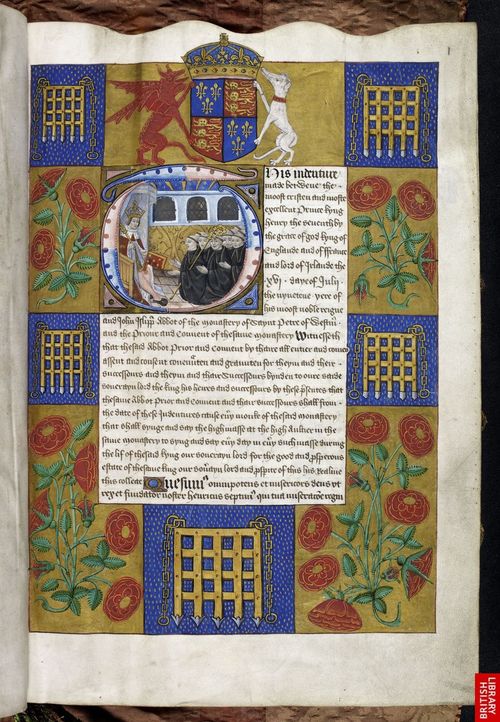 1
This indenture
made betwene the
moost cristen and moste
excellent Prince kyng
henry the seventh by
the grace of god kyng of
Englande and of ffraunce
and lord of Irlande the
XVI daye of July
the nynetene yere of
his moost noble reigne
and John Islipp Abbot of the monastery of Saynt Petre of Westm
and the Priour and Convent of thesame monastery Witnesseth
that thesaid Abbot Prior and Convent by thaire assent and
assent and consent covenanten and graunten for theym and their
successours and theym and thair Successours bynden to oure saide
souverayn lord the king his heires and successours by these presents that
thesame Abbot prior and Convent and thair Successours shall from
the date of these Indentures cause
that shall synge and say the high masse at the high Aulter in the
same monastery to syng and say
the lif of thesaid kyng our souverayn lord for the good and prosperous
estate of thesame king our lord and of this his Realme
this collecte Quesumus omnipotens et misericors deus ut
rex et fundator noster henricus septimus qui tua miseratione regni
BRITISH
LIBRARY